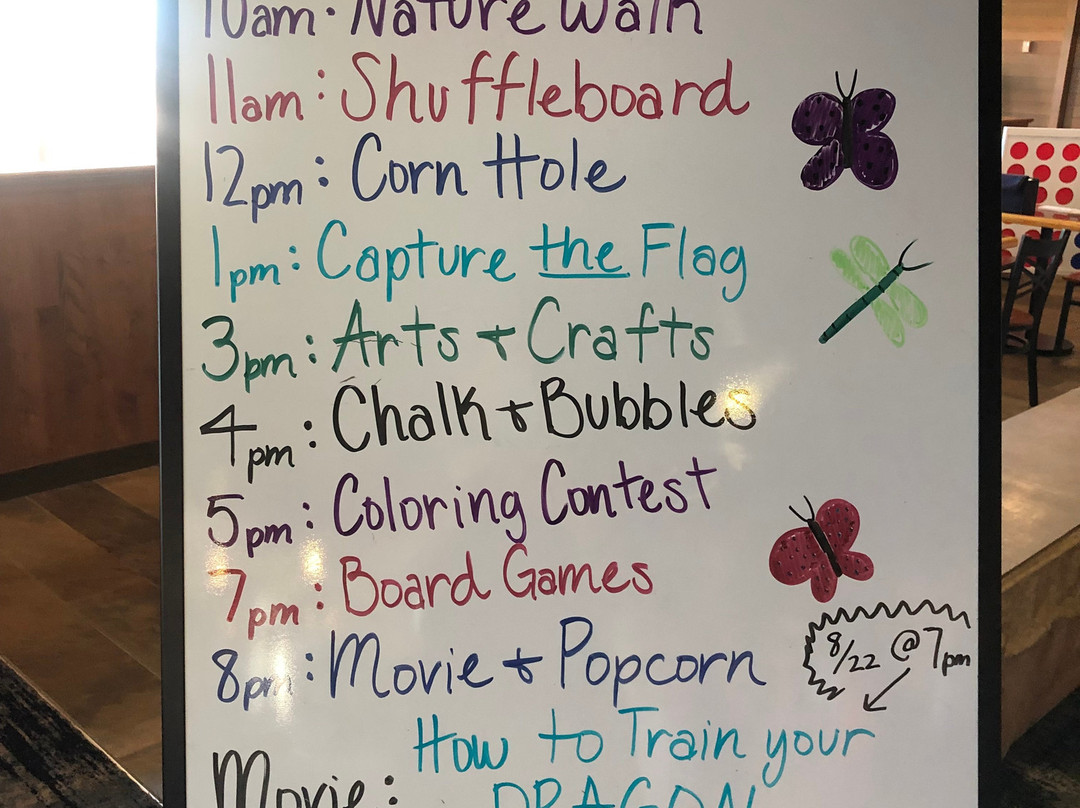 10am: Nature Walk
11am: Shuffleboard
12pm: Corn Hole
1pm: Capture the Flag
3pm: Arts + Crafts
4pm: Chalk + Bubbles
5pm: Coloring Contest
7pm: Board Games
8pm: Movie + Popcorn
8/22 @ 7pm
Movie: How to Train your
DRAGON